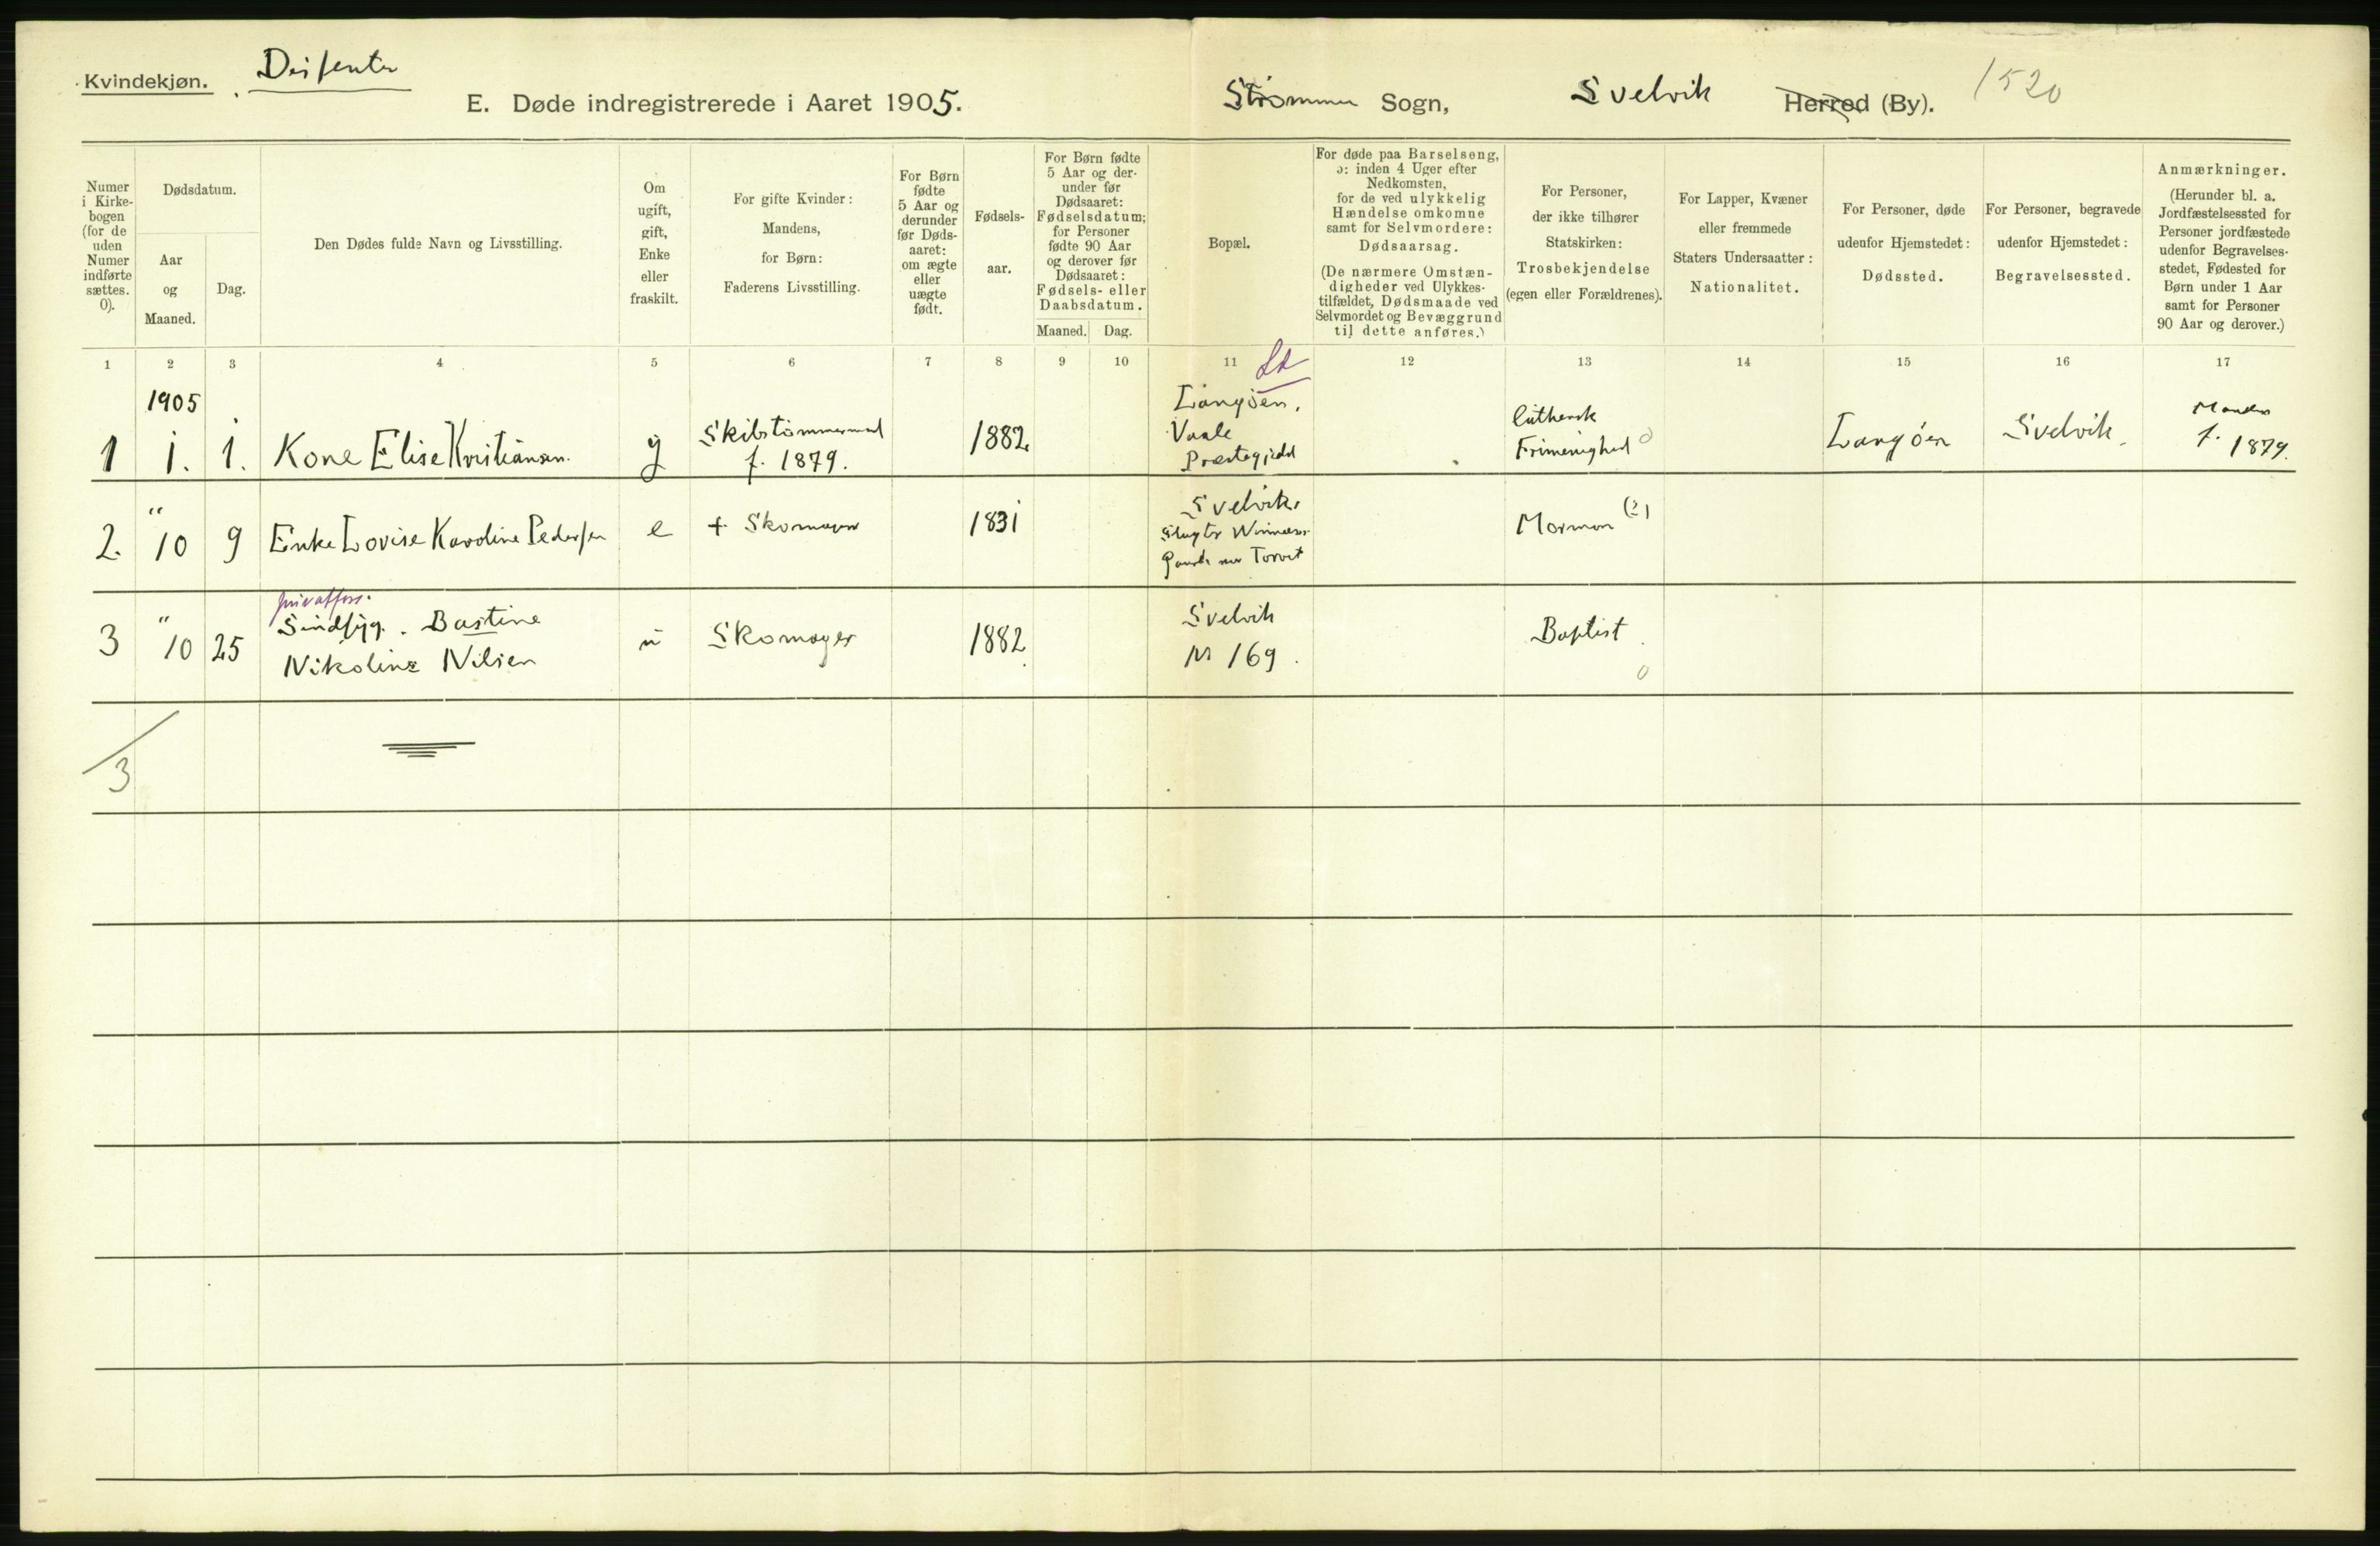 Kvindekjøn.
E. Døde indregistrerede i Aaret 1905.
Sogn, Svelvik Herred (By).
1520
Numer
i Kirke-
bogen
(for de
uden
Numer
indførte
sættes.
0).
Dødsdatum.
Aar
og
Maaned.
Dag.
Den Dødes fulde Navn og Livsstilling.
Om
ugift,
gift,
Enke
eller
fraskilt.
For gifte Kvinder:
Mandens,
for Børn:
Faderens Livsstilling.
For Børn
fødte
5 Aar og
derunder
før Døds-
aaret:
om ægte
eller
uægte
født.
Fødsels-
aar.
For Børn fødte
5 Aar og der-
under før
Dødsaaret:
Fødselsdatum;
for Personer
fødte 90 Aar
og derover før
Dødsaaret:
Fødsels- eller
Daabsdatum.
Maaned. Dag.
Bopæl.
For døde paa Barselseng,
ɔ: inden 4 Uger efter
Nedkomsten,
for de ved ulykkelig
Hændelse omkomne
samt for Selvmordere:
Dødsaarsag.
(De nærmere Omstæn-
digheder ved Ulykkes-
tilfældet, Dødsmaade ved
Selvmordet og Bevæggrund
til dette anføres.)
For Personer,
der ikke tilhører
Statskirken:
Trosbekjendelse
(egen eller Forældrenes).
For Lapper, Kvæner
eller fremmede
Staters Undersaatter:
Nationalitet.
For Personer, døde
udenfor Hjemstedet:
Dødssted.
For Personer, begravede
udenfor Hjemstedet:
Begravelsessted.
Anmærkninger.
(Herunder bl. a.
Jordfæstelsessted for
Personer jordfæstede
udenfor Begravelses-
stedet, Fødested for
Børn under 1 Aar
samt for Personer
90 Aar og derover.)
1 2 3 4 5 6 7 8 9 10 11 12 13 14 15 16 17
1905
1 1. 1. Kone Elise Kristiansen. g
f. 1879.
1882
Langöen,
Vaale
Præstegjeld
luthersk
Frimenighed
Langöen
Svelvik.
f.
1879.
2. " 10 9 Enke Lovise Karoline Pedersen e + Skomager 1831
Svelvik.
Torvet
Mormon (?)
3 " 10 25
Sindssyg. Bastine
Nikoline Nilsen
u Skomager 1882
Svelvik
N 169.
Baptist
3